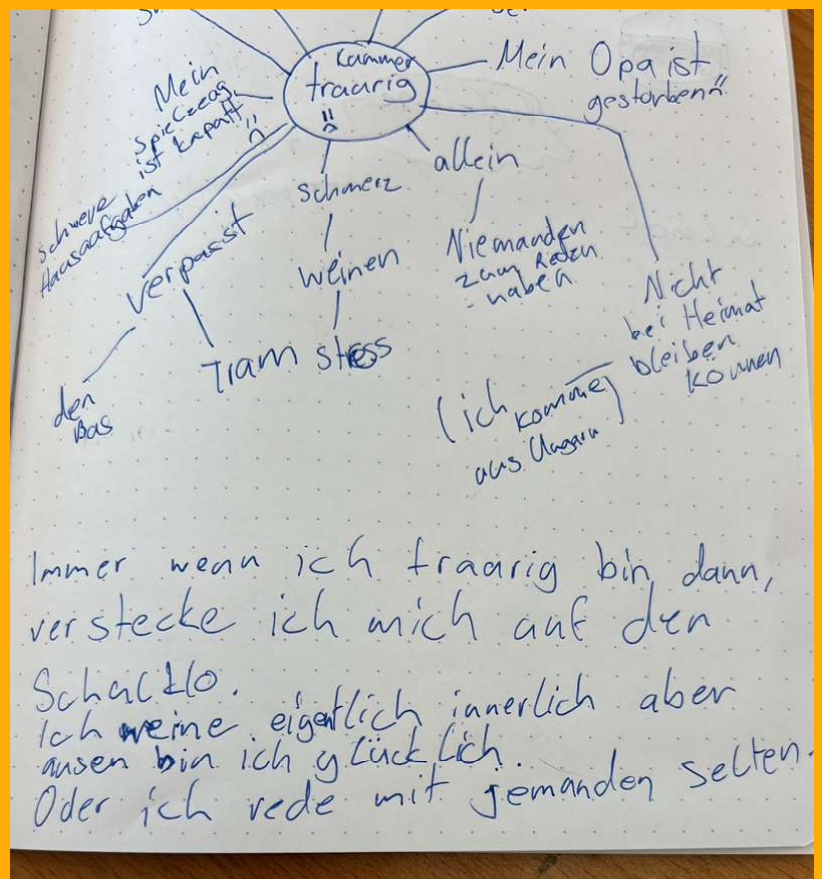 Kummer
traurig
Mein Opa ist
gestorben
Mein
Spielzeug
ist kaputt
allein
schmerz
schwere
Hausaufgaben
verpasst
weinen
Niemanden
zum Reden
haben
Nicht
bei Heimat
bleiben
können
Tram
stress
den
Bus
(ich
komme)
aus Ungarn
Immer wenn ich traurig bin dann,
verstecke ich mich auf den
Schulklo.
Ich weine eigentlich innerlich aber
ausen bin ich glücklich.
Oder ich rede mit jemanden selten.